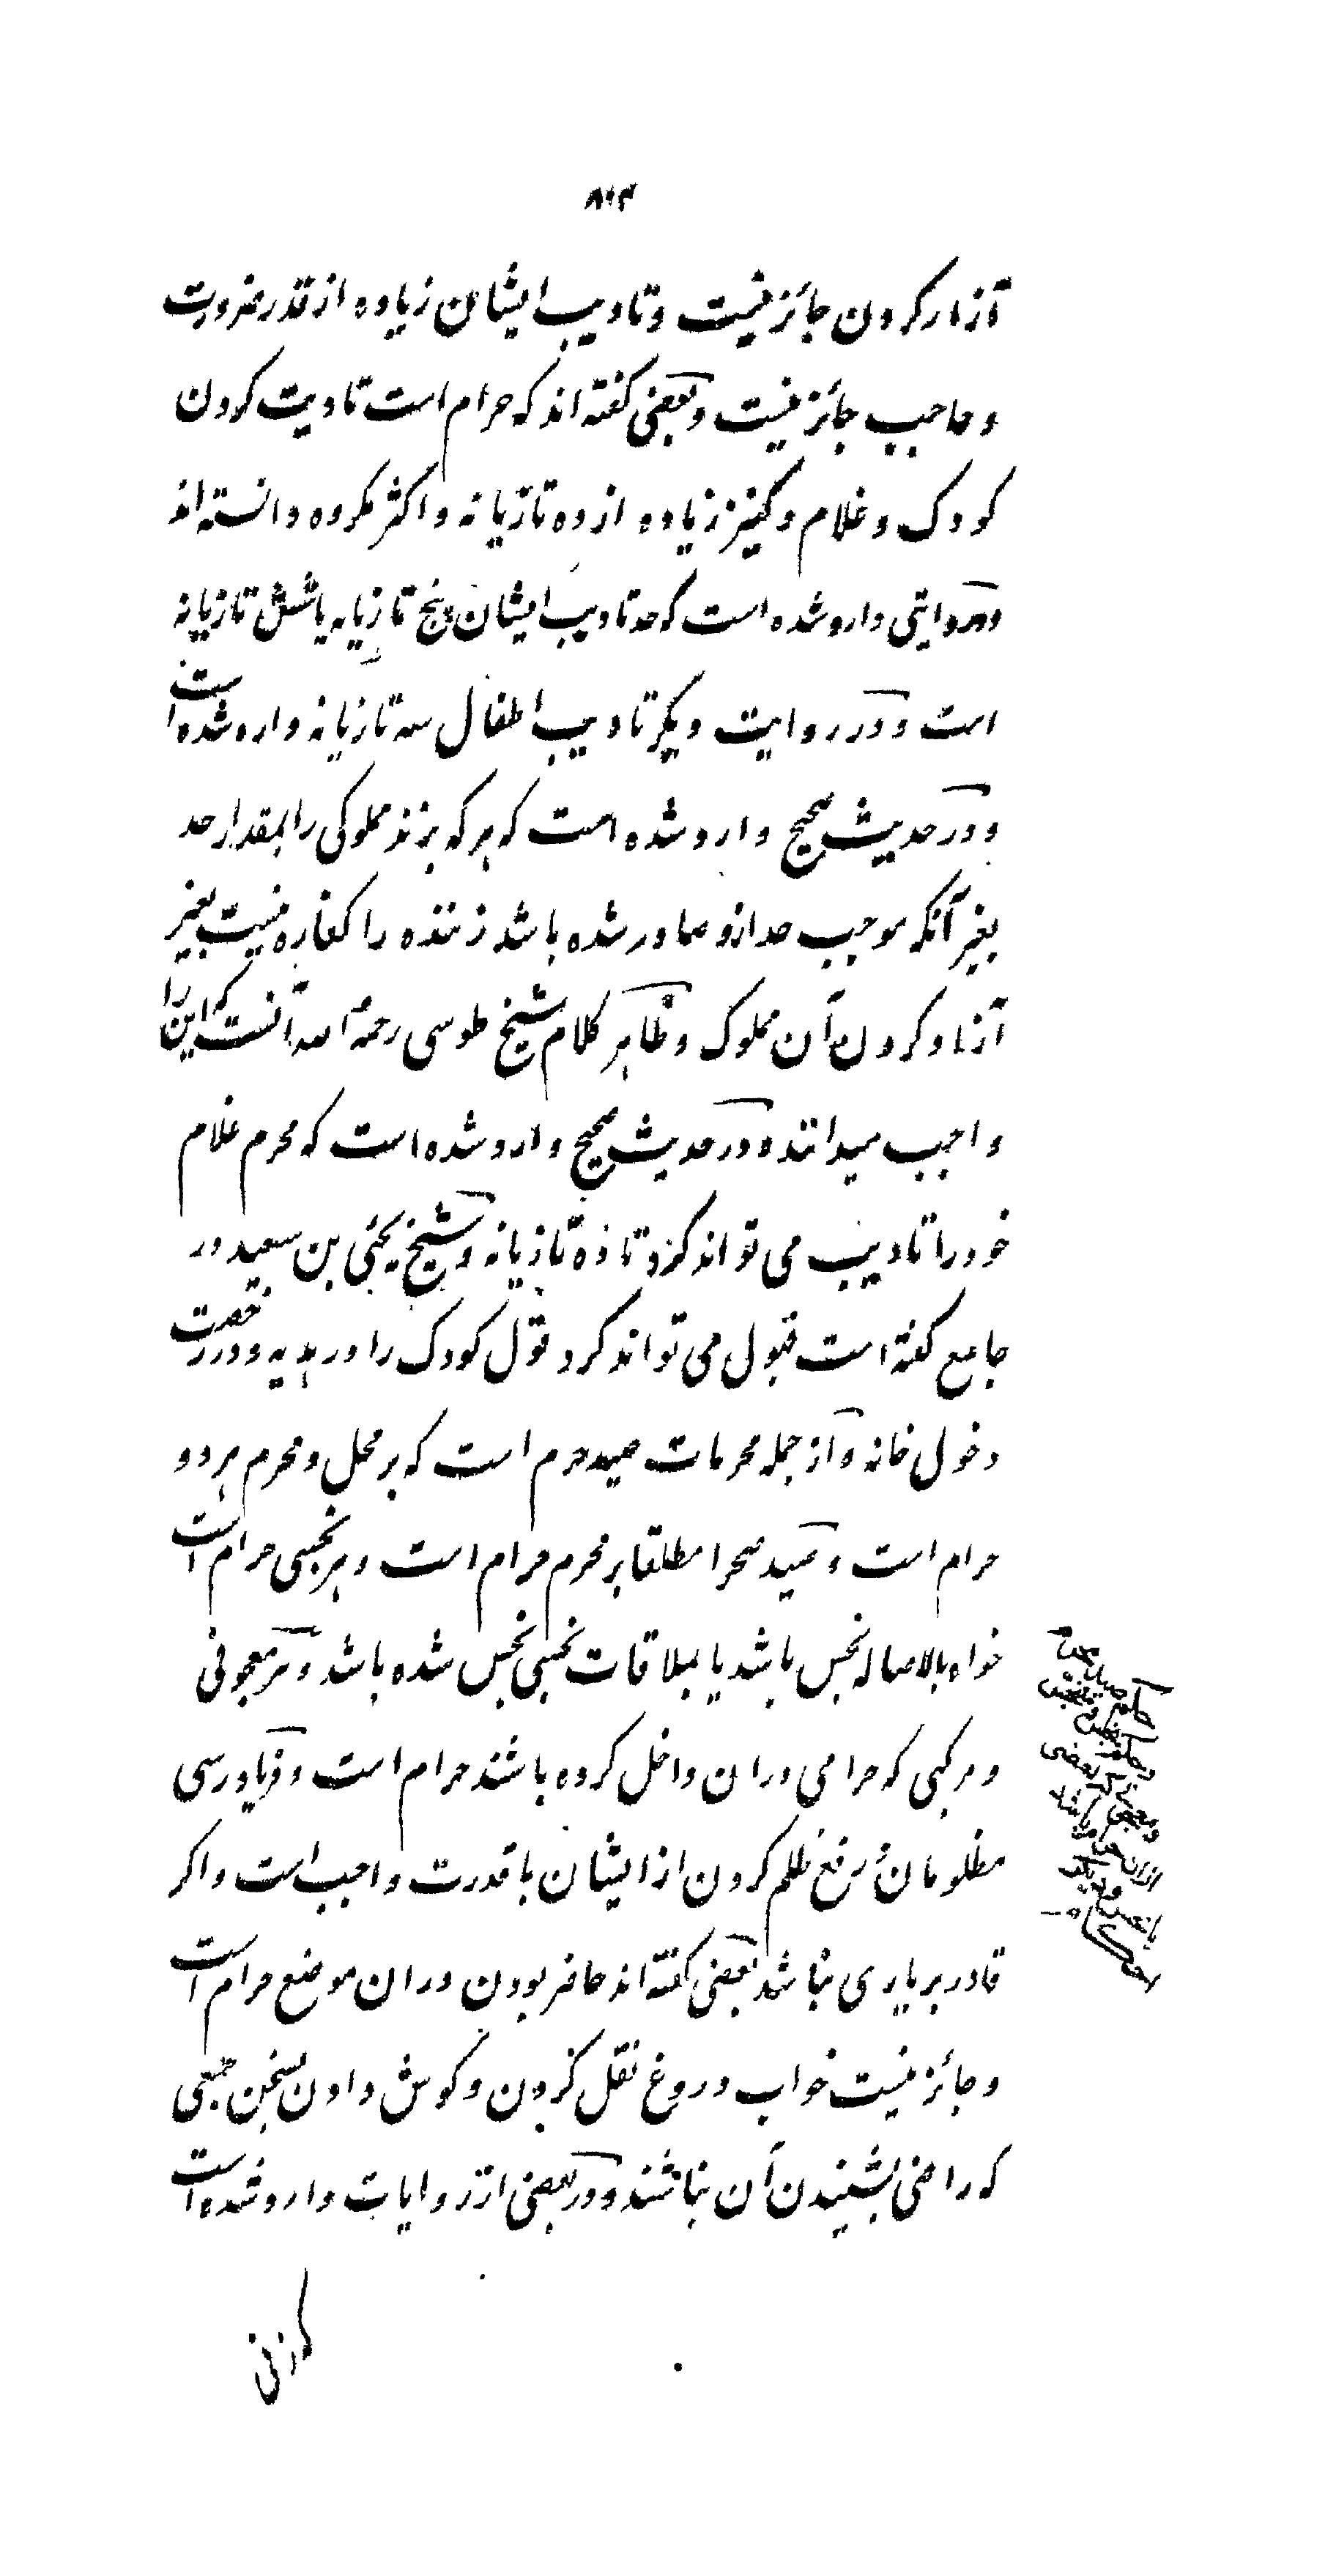 ۸۱۳
آزار کردن جائز نیست و تادیب ایشان زیاده از قدر ضرورت
و حاجب جائز نیست و بعضی گفته اند که حرام است تادیت کودن
کودک و غلام و کنیز زیاده از ده تازیانه و اکثر مکروه دانسته اند
ودر روایتی وارد شده است که حد تادیب ایشان پنج تازیانه یا شش تازیانه
است و در روایت دیگر تادیب اطفال سه تازیانه وارد شده است
و در حدیث صحیح وارد شده است که هر که بزند مملوکی را بمقدار حد
بغیر آنکه موجب حد ازو صادر شده باشد زننده را کفاره نیست بغیر
آزاد کردن آن مملوک و ظاهر کلام شیخ طوسی رحمه الله آنست که این را
واجب میدانند و در حدیث صحیح وارد شده است که محرم غلام
خود را تادیب می تواند کرد تا ده تازیانه و شیخ یحیی بن سعید در
جامع گفته است قبول می تواند کرد قول کودک را در هدیه و در رخصت
دخول خانه و از جمله محرمات صید حرم است که بر محل و محرم هر دو
حرام است و صید صحرا مطلقا بر محرم حرام است و هر نجسی حرام است
خواه بالاصاله نجس باشد یا بملاقات نجسی نجس شده باشد و هر معجونی
و مرکبی که حرامی دران داخل کرده باشند حرام است و فریادرسی
مظلومان و رفع ظلم کردن از ایشان با قدرت واجب است و اگر
قادر بر یاری نباشد بعضی گفته اند حاضر بودن دران موضع حرام است
و جائز نیست خواب دروغ نقل کردن و گوش دادن بسخن جمعی
که راضی بشنیدن آن نباشند و در بعضی از روایات وارد شده است
حکم صید حرم